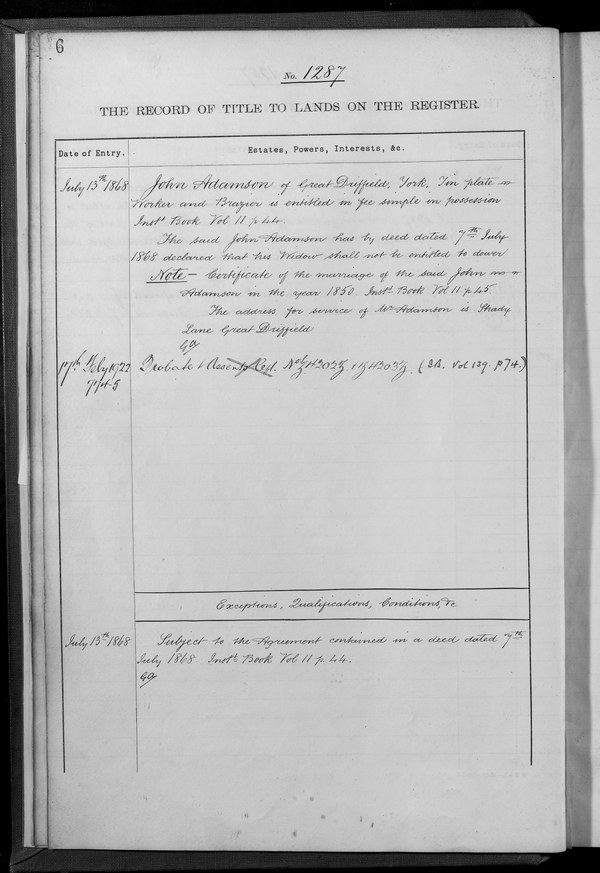 6
No. 1287
THE RECORD OF TITLE TO LANDS ON THE REGISTER.
Date of Entry.
Estates, Powers, Interests, &c.
July 13th 1868
John Adamson of Great Driffield, York, Tin plate
Worker and Brazier is entitled in fee simple in possession
Inst. Book Vol 11 p 44
The said John Adamson has by deed dated 7th July
1868 declared that his Widow shall not be entitled to dower
Note - Certificate of the marriage of the said John
Adamson in the year 1850. Inst. Book Vol 11 p 45
The address for service of Mr Adamson is Shady
Lane Great Driffield
17th July 1922
Probate & Assent Red. (I.B. Vol 129. p 74.)
Exceptions, Qualifications, Conditions, &c
July 13th 1868
Subject to the Agreement contained in a deed dated 7th
July 1868 Inst. Book Vol 11 p. 44.